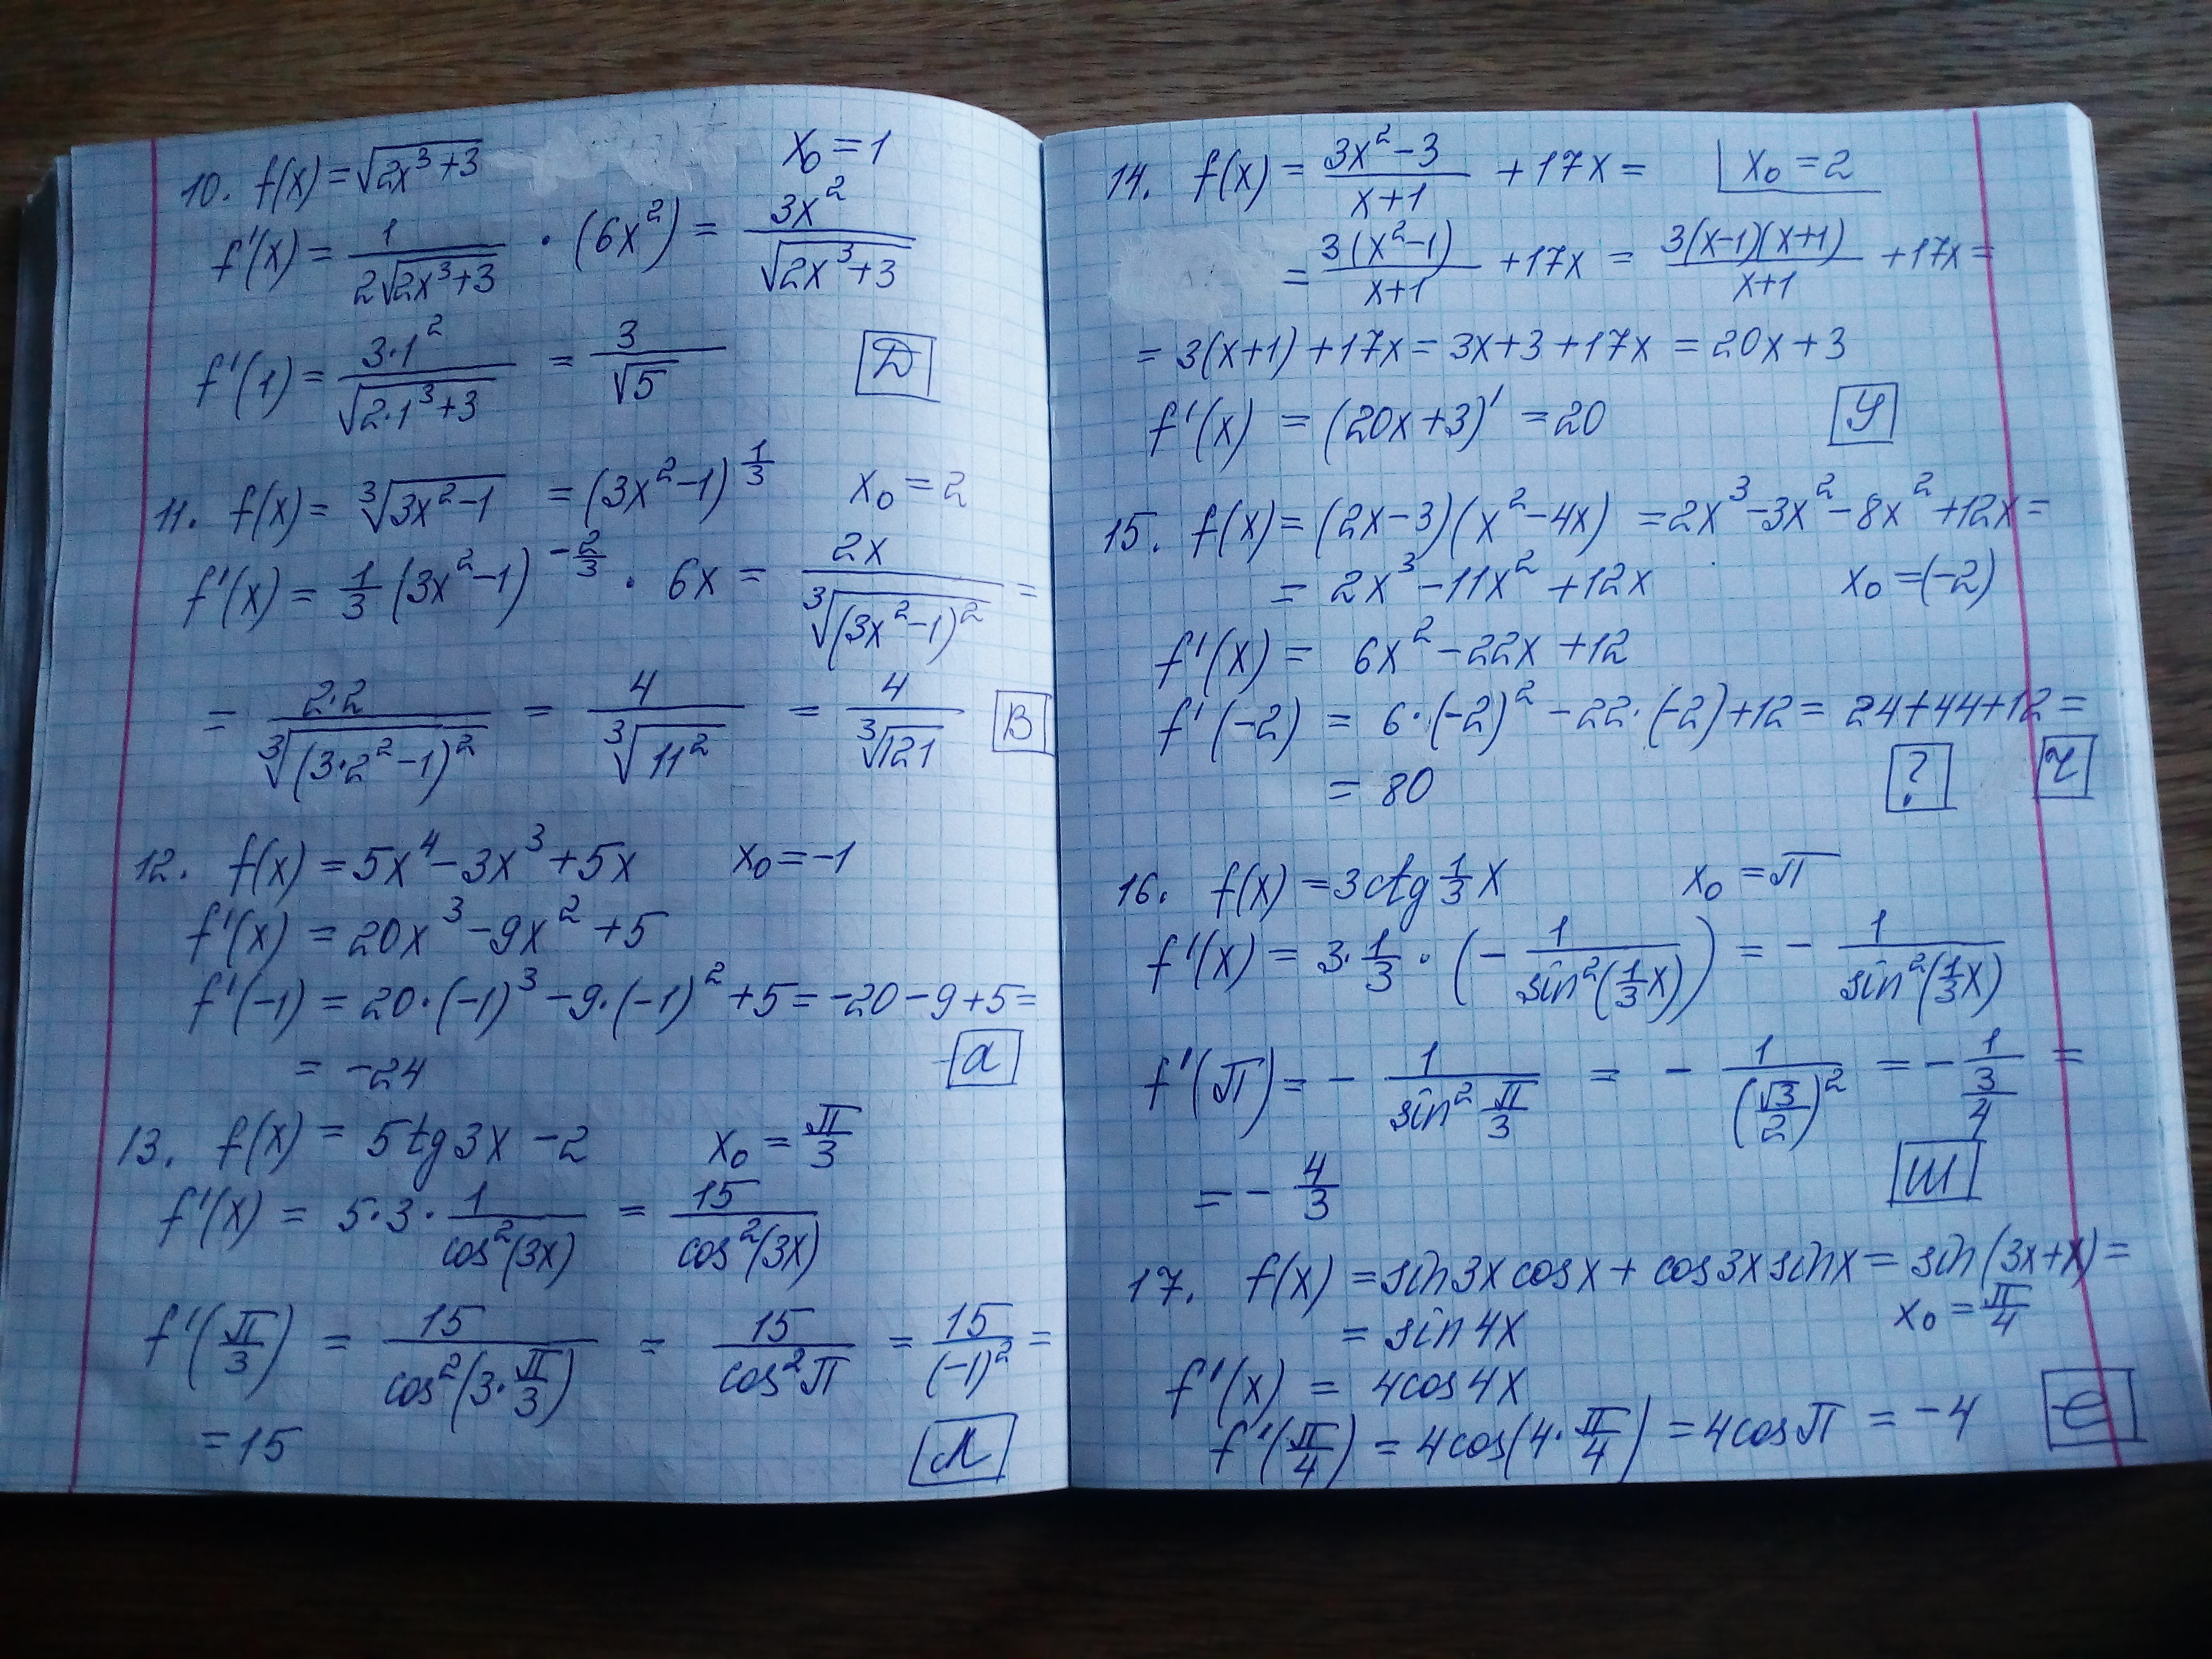 10. f(x) = √(2x³+3)    x₀ = 1
f'(x) = 1/(2√(2x³+3)) · (6x²) = 3x²/√(2x³+3)
f'(1) = 3·1²/√(2·1³+3) = 3/√5    Д
11. f(x) = ∛(3x²-1) = (3x²-1)^(1/3)    x₀ = 2
f'(x) = 1/3 (3x²-1)^(-2/3) · 6x = 2x/∛((3x²-1)²) =
= 2·2/∛((3·2²-1)²) = 4/∛(11²) = 4/∛121    В
12. f(x) = 5x⁴-3x³+5x    x₀ = -1
f'(x) = 20x³-9x²+5
f'(-1) = 20·(-1)³-9·(-1)²+5 = -20-9+5 =
= -24    а
13. f(x) = 5tg3x-2    x₀ = π/3
f'(x) = 5·3·1/cos²(3x) = 15/cos²(3x)
f'(π/3) = 15/cos²(3·π/3) = 15/cos²π = 15/(-1)² =
= 15    Л
14. f(x) = (3x²-3)/(x+1) + 17x =    x₀ = 2
= 3(x²-1)/(x+1) + 17x = 3(x-1)(x+1)/(x+1) + 17x =
= 3(x+1)+17x = 3x+3+17x = 20x+3
f'(x) = (20x+3)' = 20    У
15. f(x) = (2x-3)(x²-4x) = 2x³-3x²-8x²+12x =
= 2x³-11x²+12x    x₀ = (-2)
f'(x) = 6x²-22x+12
f'(-2) = 6·(-2)²-22·(-2)+12 = 24+44+12 =
= 80    ?
16. f(x) = 3ctg 1/3 x    x₀ = π
f'(x) = 3·1/3·(-1/sin²(1/3 x)) = -1/sin²(1/3 x)
f'(π) = -1/sin² π/3 = -1/(√3/2)² = -1/(3/4) =
= -4/3    Ш
17. f(x) = sin3x cosx + cos3x sinx = sin(3x+x) =
= sin4x    x₀ = π/4
f'(x) = 4cos4x
f'(π/4) = 4cos(4·π/4) = 4cosπ = -4    е